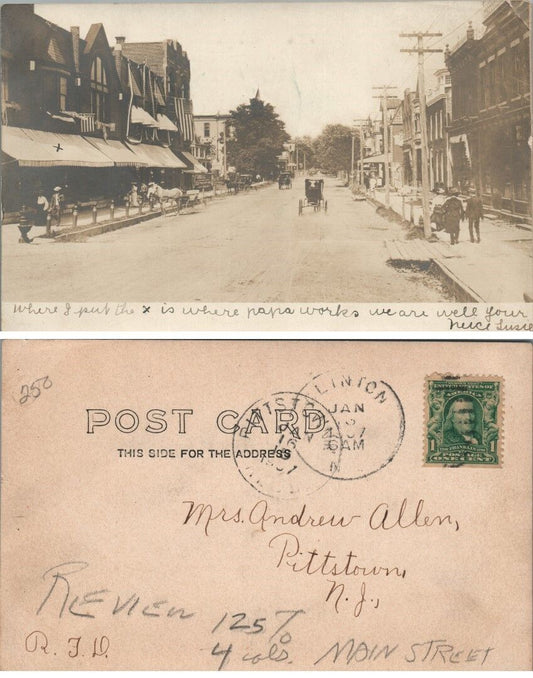 x
Where I put the x is where papa works we are well your
neice Susie
250
POST CARD
THIS SIDE FOR THE ADDRESS
CLINTON
JAN
3
6AM
PITTSTOWN
JAN
1907
UNITED STATES OF
AMERICA
FRANKLIN
1
POSTAGE
ONE CENT
Mrs. Andrew Allen,
Pittstown,
N.J.,
REVIEW 125%
4 cols. MAIN STREET
R.F.D.